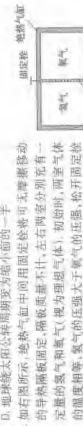 D. 地球绕太阳公转周期变为缩小前的一半
如右图所示,绝热气缸中间用固定栓将可无摩擦移动
的导热隔板固定,隔板质量不计,左右两室分别充有一
定量的氢气和氧气(视为理想气体). 初始时,两室气体
的温度相等,氢气的压强大于氧气的压强,松开固定栓
固定栓 绝热气缸
氢气 氧气